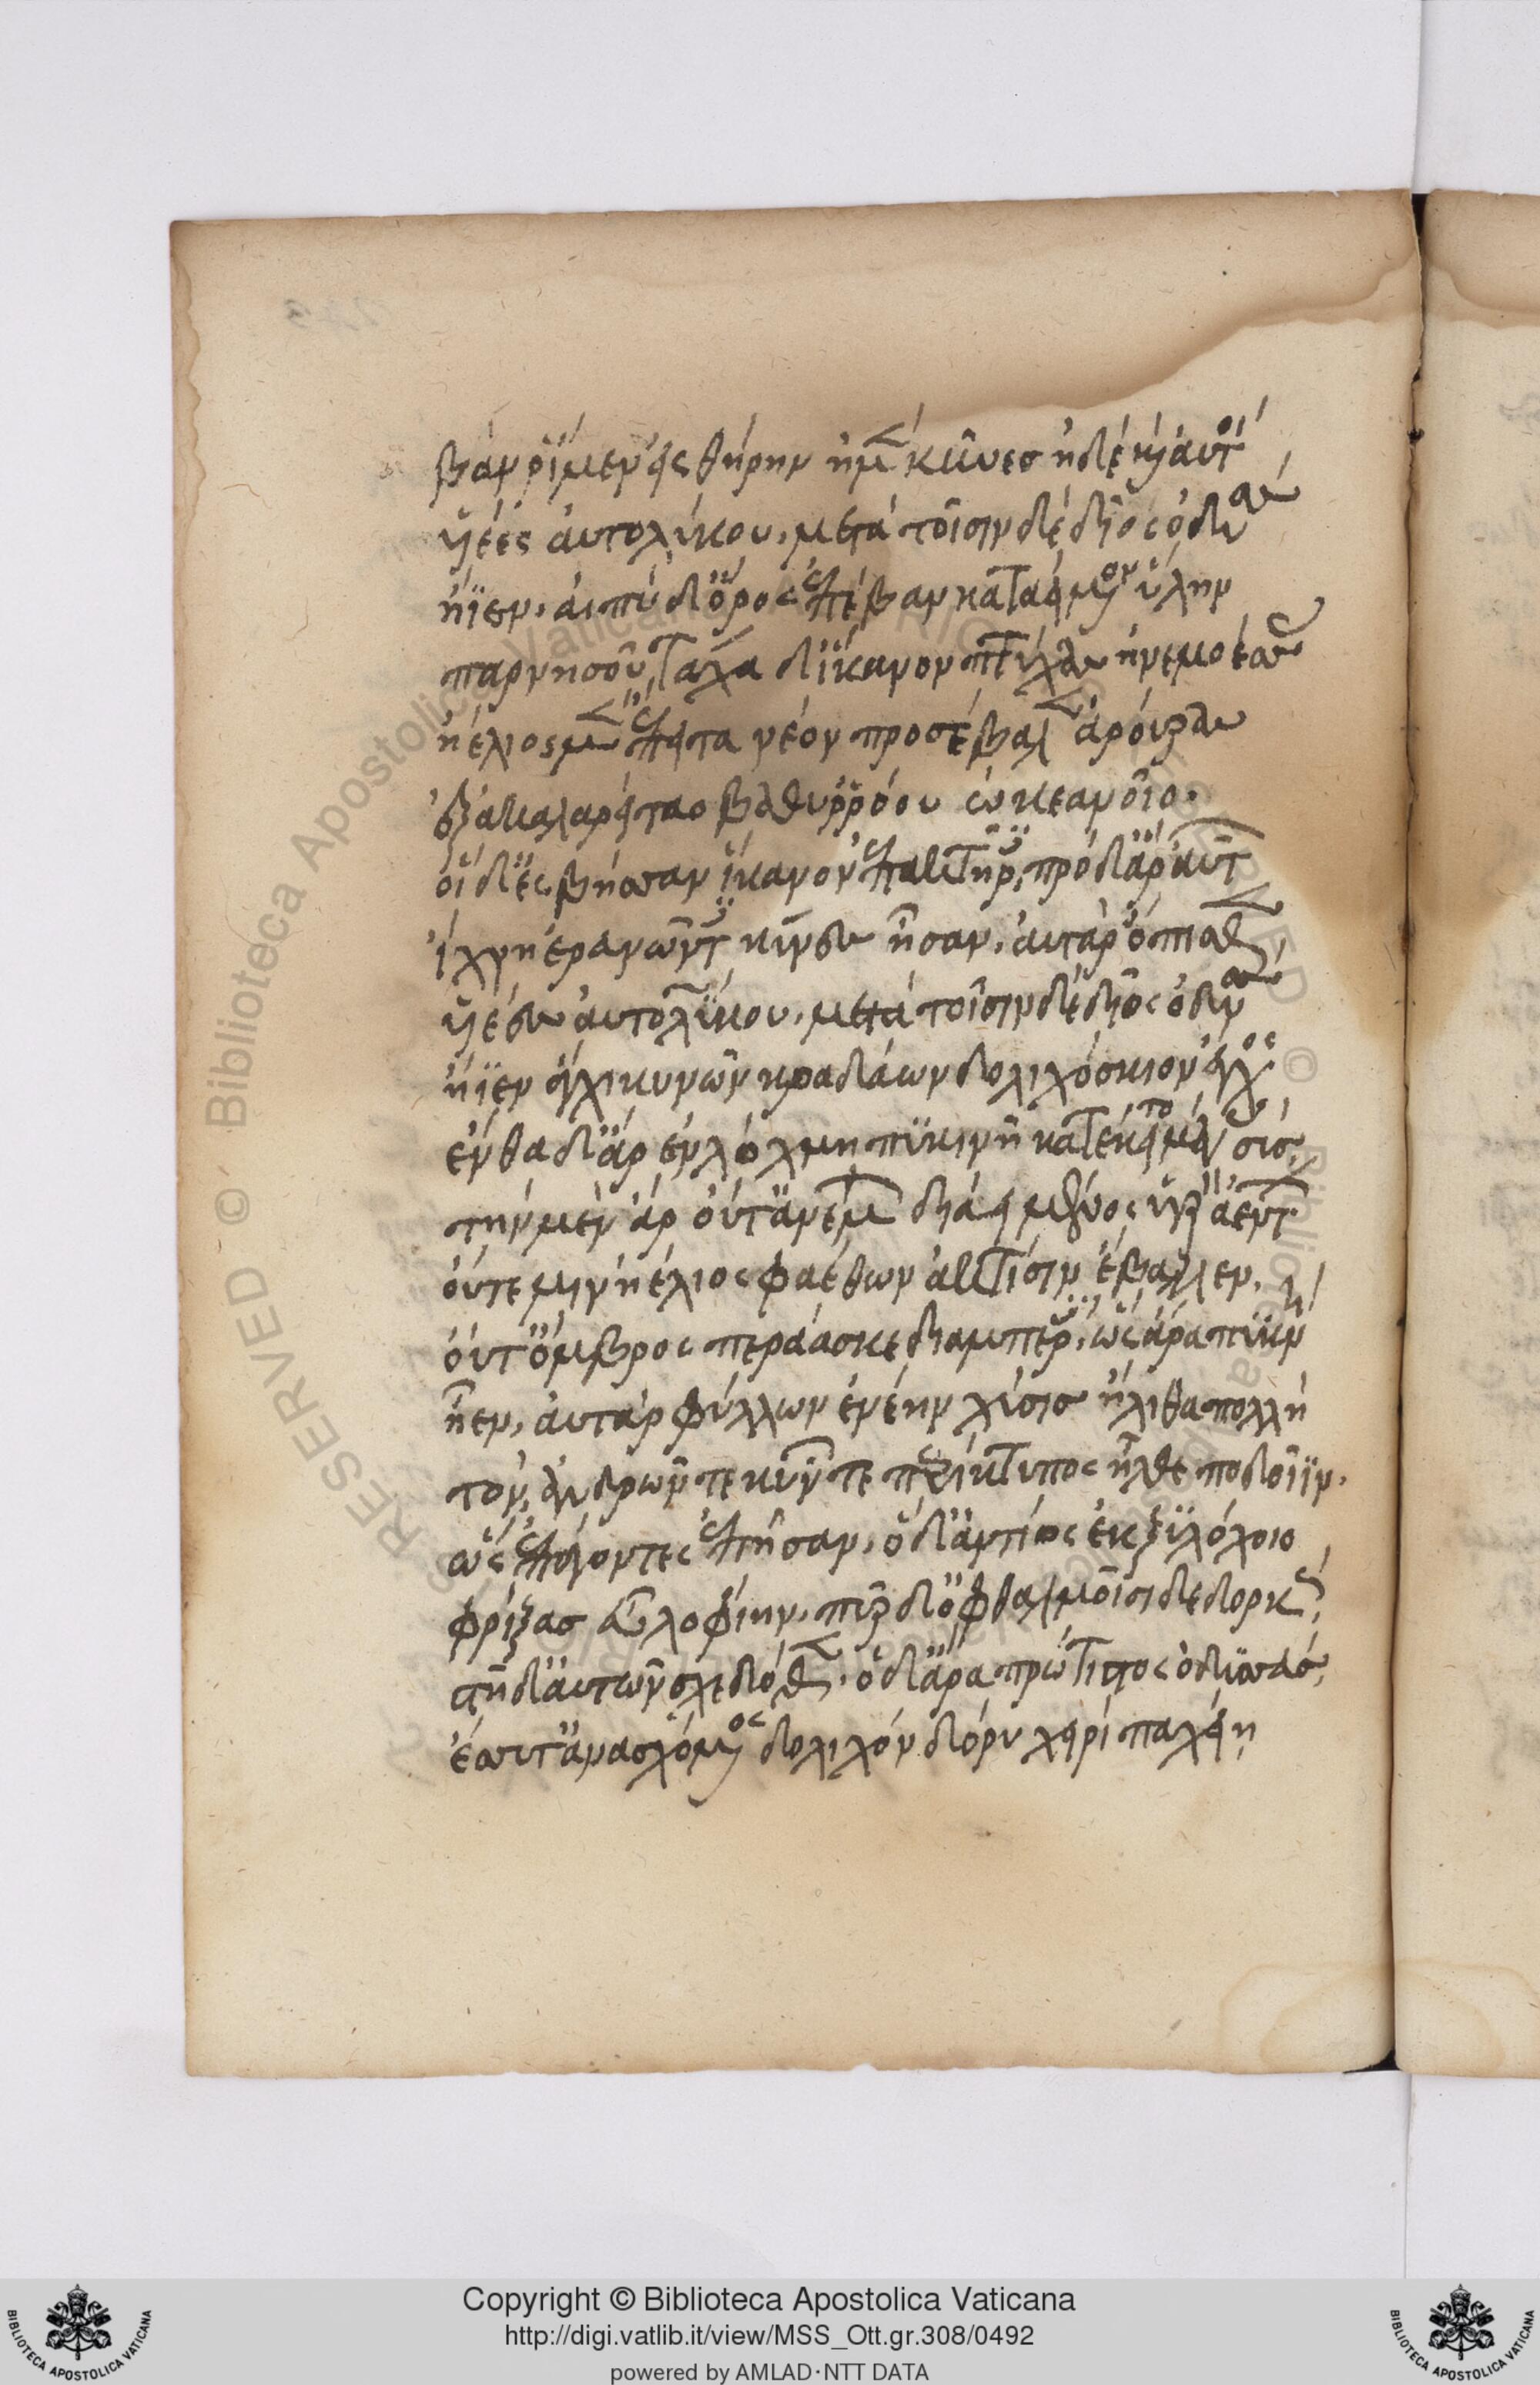 βάν ῥ' ἴμεν ἐς θήρην ἠμὲν κύνες ἠδὲ καὶ αὐτοί
υἱέες αὐτολύκου, μετὰ τοῖσιν δὲ δῖος ὀδυσσεύς
ἤϊεν, αἰπὺ δ' ὄρος προσέβαν καταειμένον ὕλην
παρνησοῦ, τάχα δ' ἵκανον πτύχας ἠνεμοέσσας
ἠέλιος μὲν ἔπειτα νέον προσέβαλλεν ἀρούρας
ἐξ ἀκαλαρείταο βαθυρρόου ὠκεανοῖο.
οἱ δ' ἐς βῆσσαν ἵκανον ἐπακτῆρες, πρὸ δ' ἄρ' αὐτῶν
ἴχνη ἐρευνῶντες κύνες ἦσαν, αὐτὰρ ὄπισθεν
υἱέες αὐτολύκου, μετὰ τοῖσιν δὲ δῖος ὀδυσσεύς
ἤϊεν ἄγχι κυνῶν κραδάων δολιχόσκιον ἔγχος
ἔνθα δ' ἄρ' ἐν λόχμη πυκινῇ κατέκειτο μέγας σῦς,
τὴν μὲν ἄρ' οὔτ' ἀνέμων διάει μένος ὑγρὸν ἀέντων
οὔτε μιν ἠέλιος φαέθων ἀκτῖσιν ἔβαλλεν,
οὔτ' ὄμβρος περάασκε διαμπερές, ὣς ἄρα πυκνή
ἦεν, ἀτὰρ φύλλων ἐνέην χύσις ἤλιθα πολλή
τὸν δ' ἀνδρῶν τε κυνῶν τε περὶ κτύπος ἦλθε ποδοῖϊν,
ὡς ἐπάγοντες ἐπῇσαν, ὁ δ' ἀντίος ἐκ ξυλόχοιο
φρίξας εὖ λοφίην, πῦρ δ' ὀφθαλμοῖσι δεδορκώς,
στῆ δ' αὐτῶν σχεδόθεν. ὁ δ' ἄρα πρώτιστος ὀδυσσεύς,
ἔσσυτ' ἀνασχόμενος δολιχὸν δόρυ χειρὶ παχείη
Copyright © Biblioteca Apostolica Vaticana
http://digi.vatlib.it/view/MSS_Ott.gr.308/0492
powered by AMLAD·NTT DATA